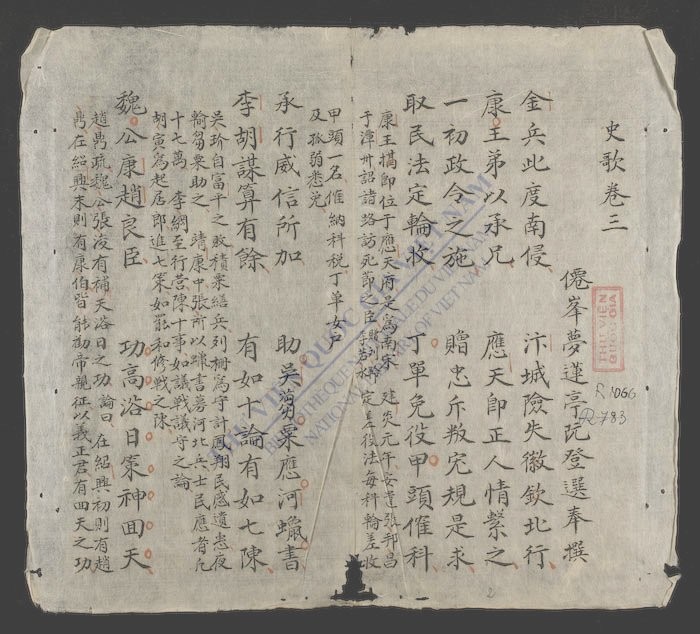 史歌卷三
僊峯夢蓮亭阮登選奉撰
金兵此度南侵 汴城險失徽欽北行
康王弟以承兄 應天即正人情縈之
一初政令之施 贈忠斥叛究規是求
取民法定輪收 丁單免役甲頭催科
康王搆即位于應天府是爲南宋 建炎元年安置張邦昌
于潭州詔諸路訪死節之臣 李若水 定差役法每科輪差收
甲頭一名催納科税丁單女戶
及孤弱悉免
承行威信所加 助吳芻粟應河蠟書
李胡謀算有餘 有如十論有如七陳
吳玠自富平之敗積粟繕兵列柵爲守計鳳翔民感遺惠夜
輸芻粟助之 靖康中張所以蠟書募河北兵士民應者凢
十七萬 李綱至行营陳十事如議戰議守之論
胡寅爲起居郎進七策如罷和修戰之陳
魏公康趙良臣 功高浴日策神回天
趙鼎疏魏公張浚有補天浴日之功論曰在紹興初則有趙
鼎在紹興末則有康伯皆能勸帝親征以義正君有回天之功
THƯ VIỆN
QUỐC GIA
R.1066
R 783
THƯ VIỆN QUỐC GIA VIỆT NAM
BIBLIOTHEQUE NATIONALE DU VIETNAM
NATIONAL LIBRARY OF VIETNAM
2